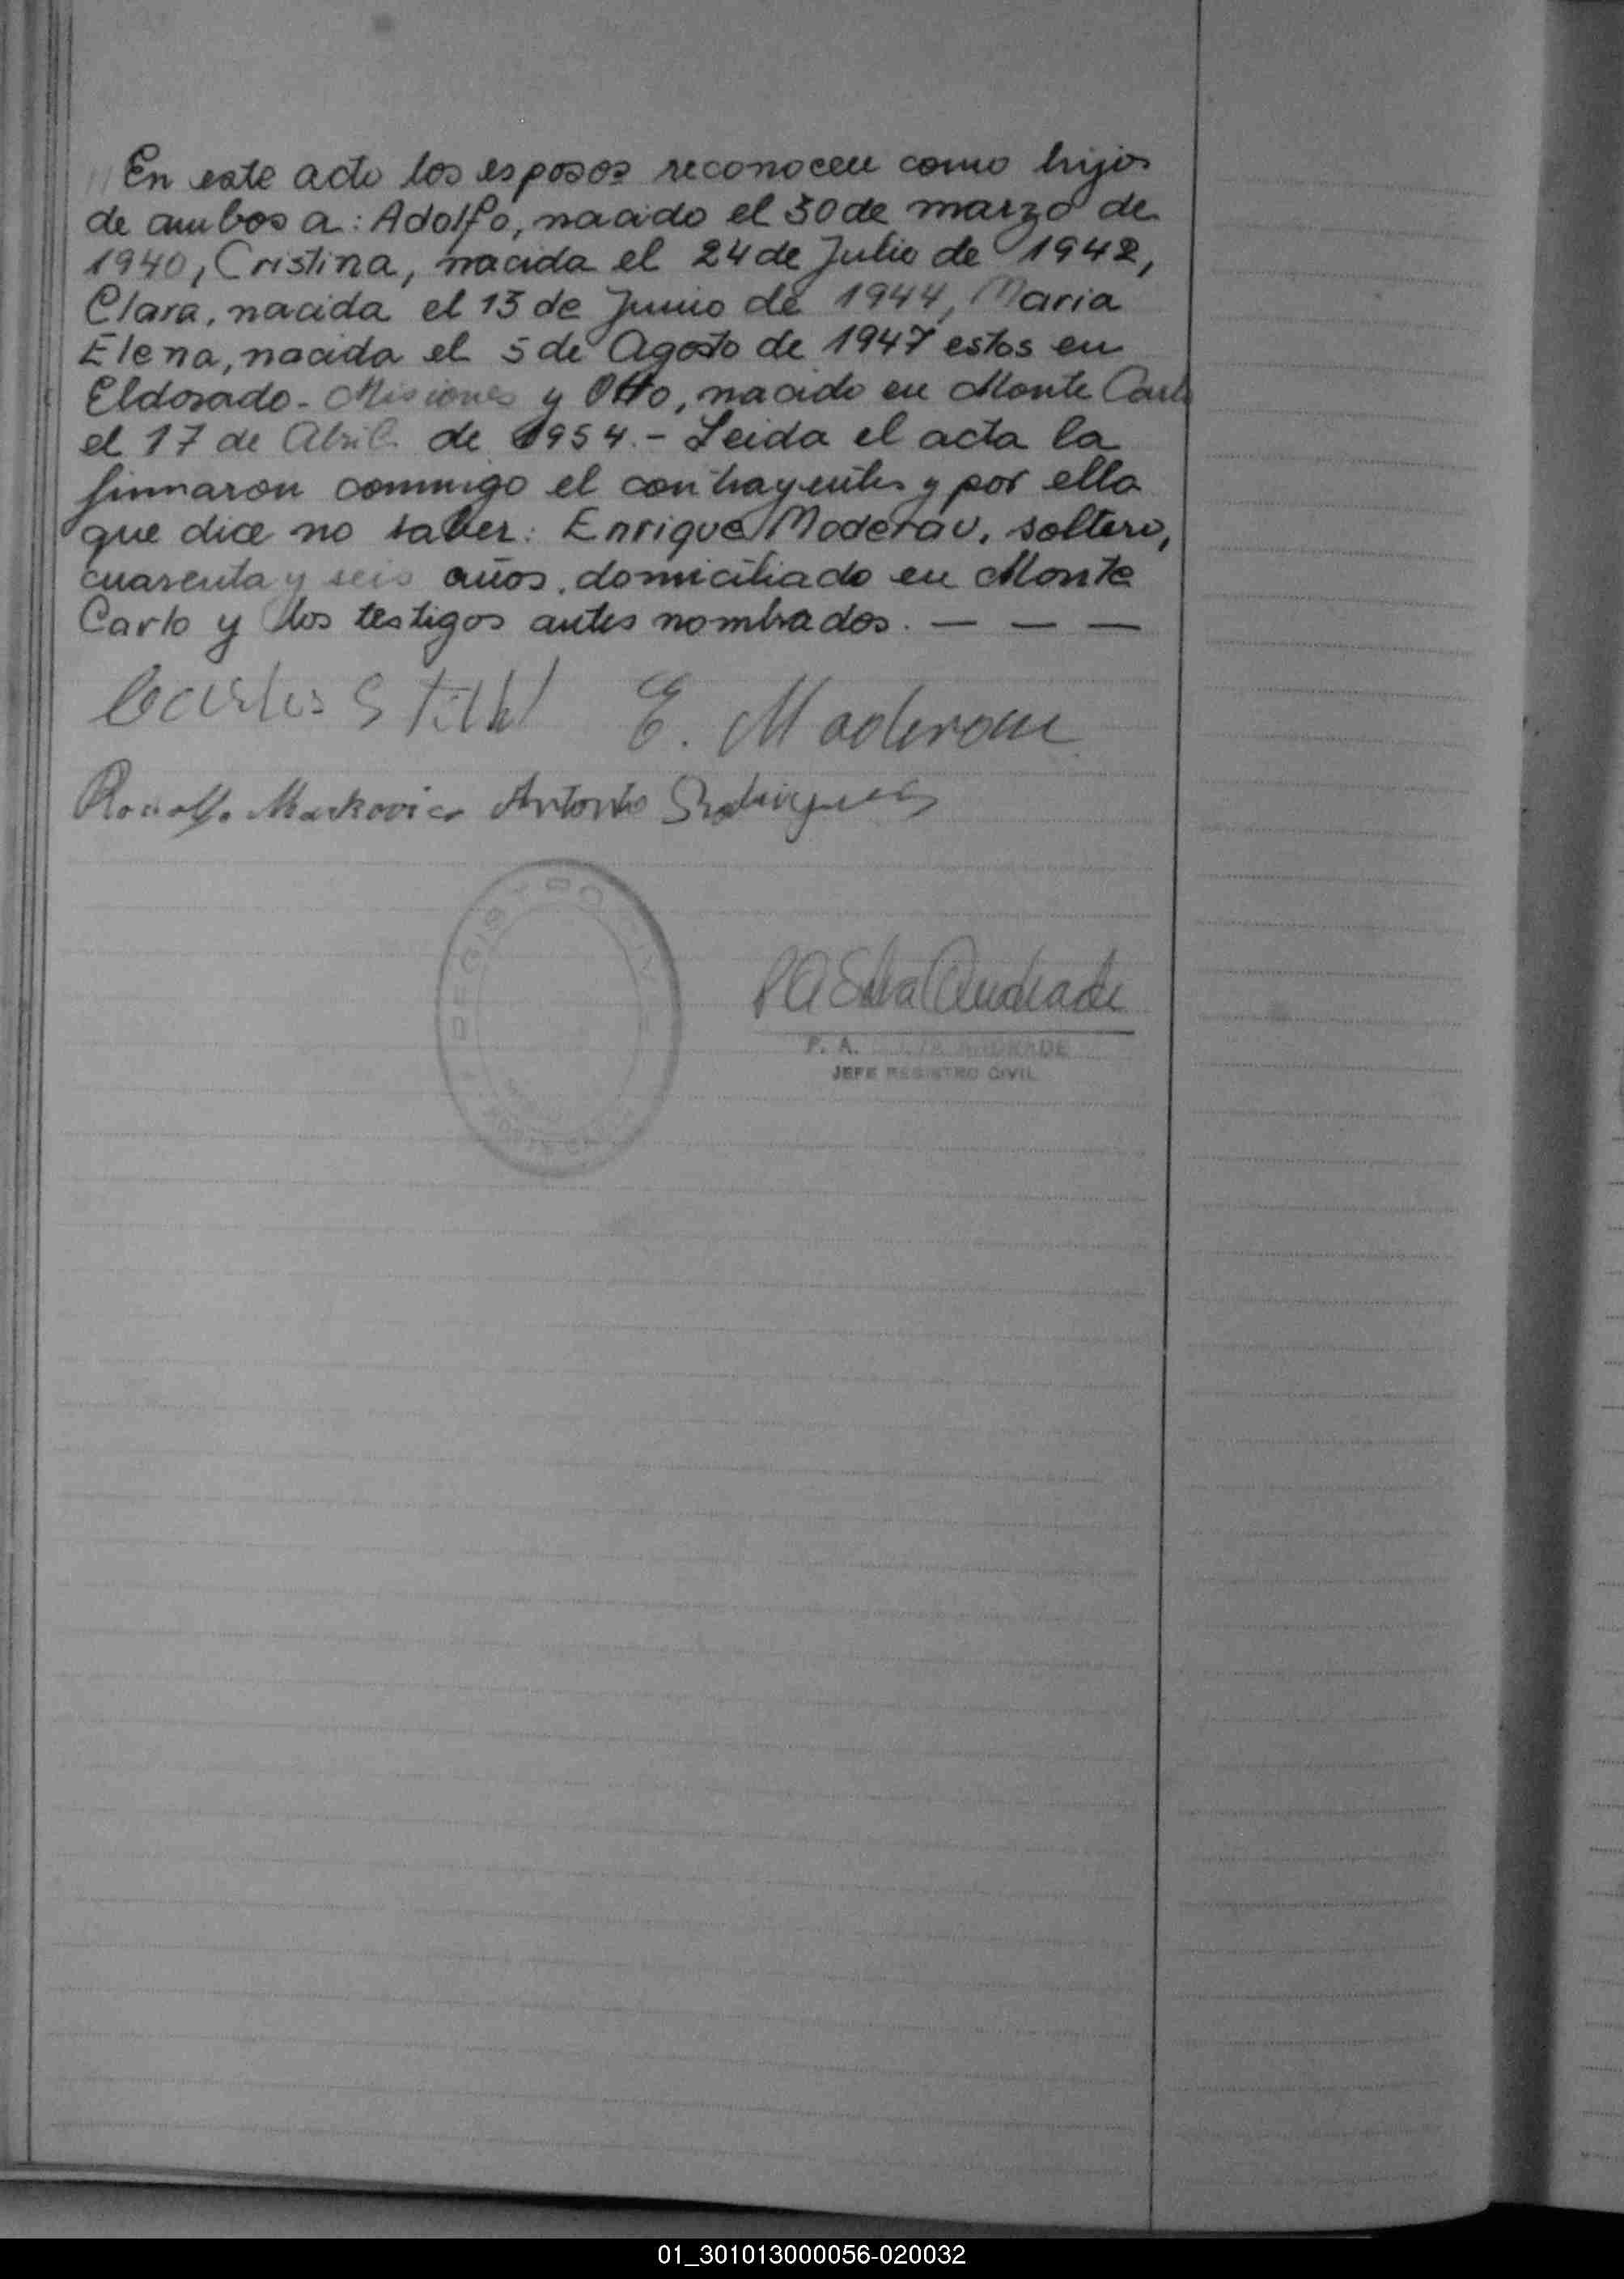 En este acto los esposos reconocen como hijos
de ambos a: Adolfo, nacido el 30 de marzo de
1940, Cristina, nacida el 24 de Julio de 1942,
Clara, nacida el 13 de Junio de 1944, Maria
Elena, nacida el 5 de Agosto de 1947 estos en
Eldorado - Misiones y Otto, nacido en Monte Carlo
el 17 de Abril de 1954.- Leida el acta la
firmaron conmigo el contrayentes y por ella
que dice no saber: Enrique Moderau, soltero,
cuarenta y seis años, domiciliado en Monte
Carlo y los testigos antes nombrados. — — —
Carlos E. Maderau
Rodolfo Markovics Antonio Rodriguez
REGISTRO CIVIL
MONTE CARLO
PA Silva Andrade
P. A. SILVA ANDRADE
JEFE REGISTRO CIVIL
01_301013000056-020032